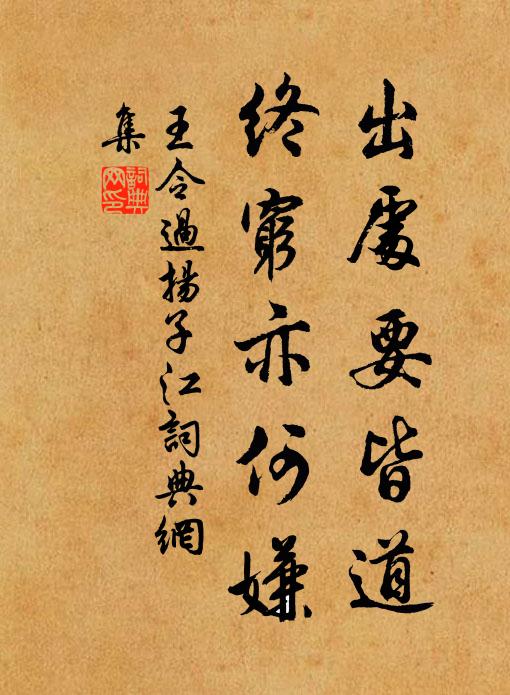 出處要皆道
終窮亦何嫌
王令過揚子江詞典網
集
詞典網印